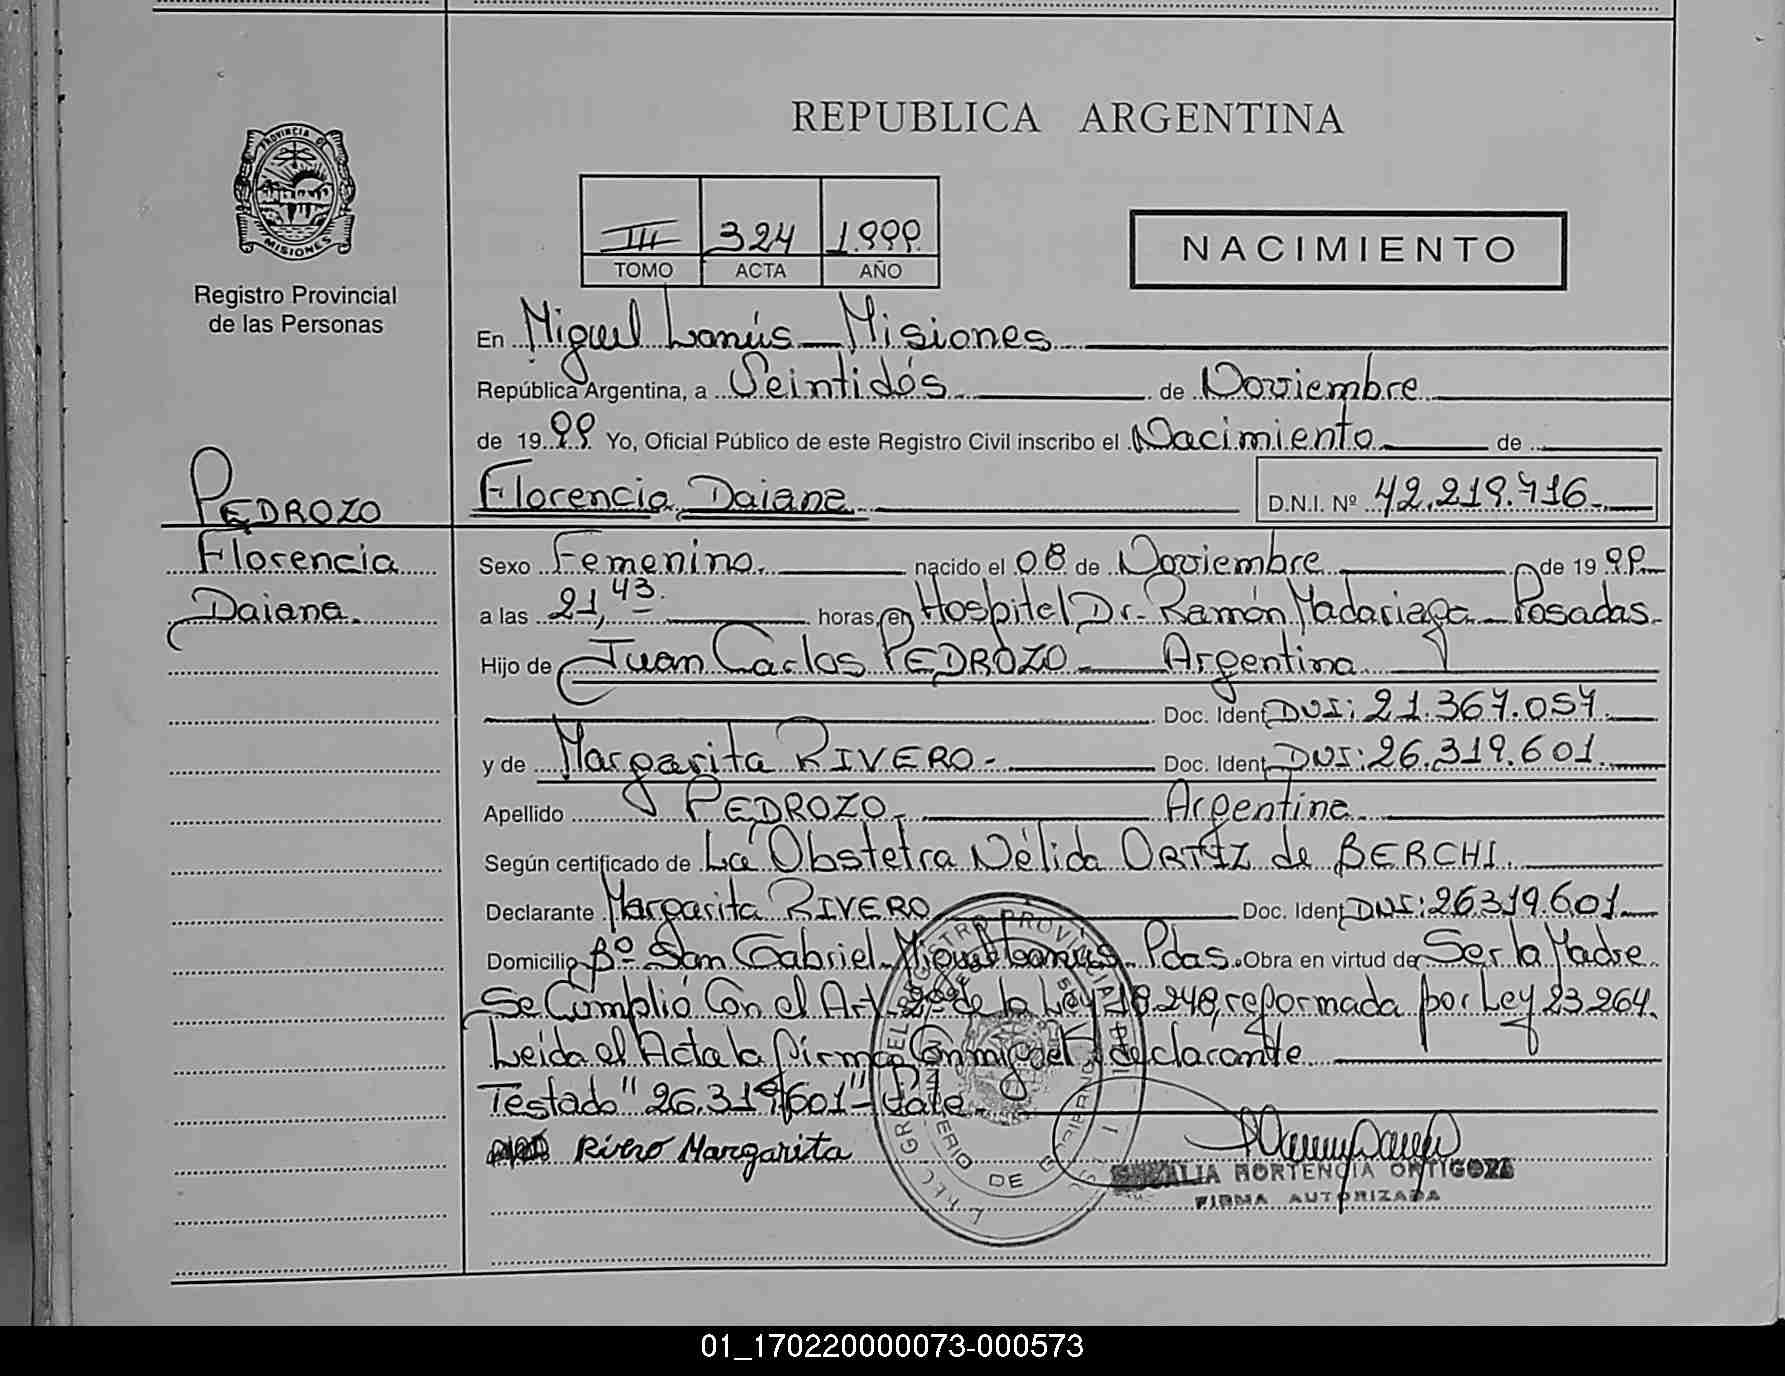 REPUBLICA ARGENTINA
PROVINCIA DE
MISIONES
Registro Provincial
de las Personas
III 324 1.999
TOMO ACTA AÑO
NACIMIENTO
En Miguel Lanús - Misiones
República Argentina, a Veintidós de Noviembre
de 19 99 Yo, Oficial Público de este Registro Civil inscribo el Nacimiento de
PEDROZO
Florencia Daiana
D.N.I. Nº 42.219.716.-
Florencia
Daiana.
Sexo Femenino. nacido el 08 de Noviembre de 19 99
a las 21,43. horas, en Hospital Dr. Ramón Madariaga - Posadas.
Hijo de Juan Carlos PEDROZO - Argentina
Doc. Ident. DNI: 21.367.057.
y de Margarita RIVERO - Doc. Ident. DNI: 26.319.601.
Apellido PEDROZO. Argentina.
Según certificado de La Obstetra Nélida ORTIZ de BERCHI.
Declarante Margarita RIVERO Doc. Ident. DNI: 26.319.601.
Domicilio Bº San Gabriel - Miguel Lanús - Pdas. Obra en virtud de Ser la Madre
Se Cumplió Con el Art. 2º de la Ley 18.248, reformada por Ley 23.264.
Leída el Acta la firma Conmigo el declarante
Testado "26.319.601" - Vale.
Rivero Margarita
HORTENCIA ORTIGOZA
FIRMA AUTORIZADA
01_170220000073-000573